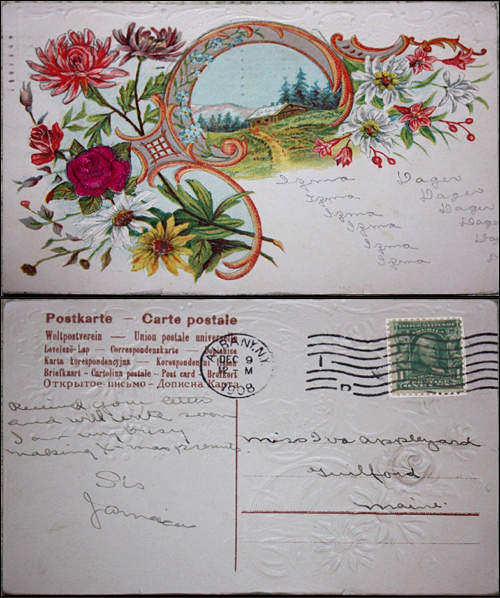 Izma Dager
Izma Dager
Izma Dager
Izma Dager
Izma Dager
Izma D
Postkarte — Carte postale
Weltpostverein — Union postale universelle
Levelező-Lap — Correspondenzkarte — Dopisnice
Karta korespondencyjna — Korespondenční
Briefkart - Cartolina postale - Post card - Brefkort
Открытое письмо — Дописна Карта
ALBANY, N.Y.
DEC 9
12 - M
1908
1
Received your letter
and will write soon
I am very busy
making Xmas presents.
Sis
Jamica
Miss Iva Appleyard
Guilford
Maine.